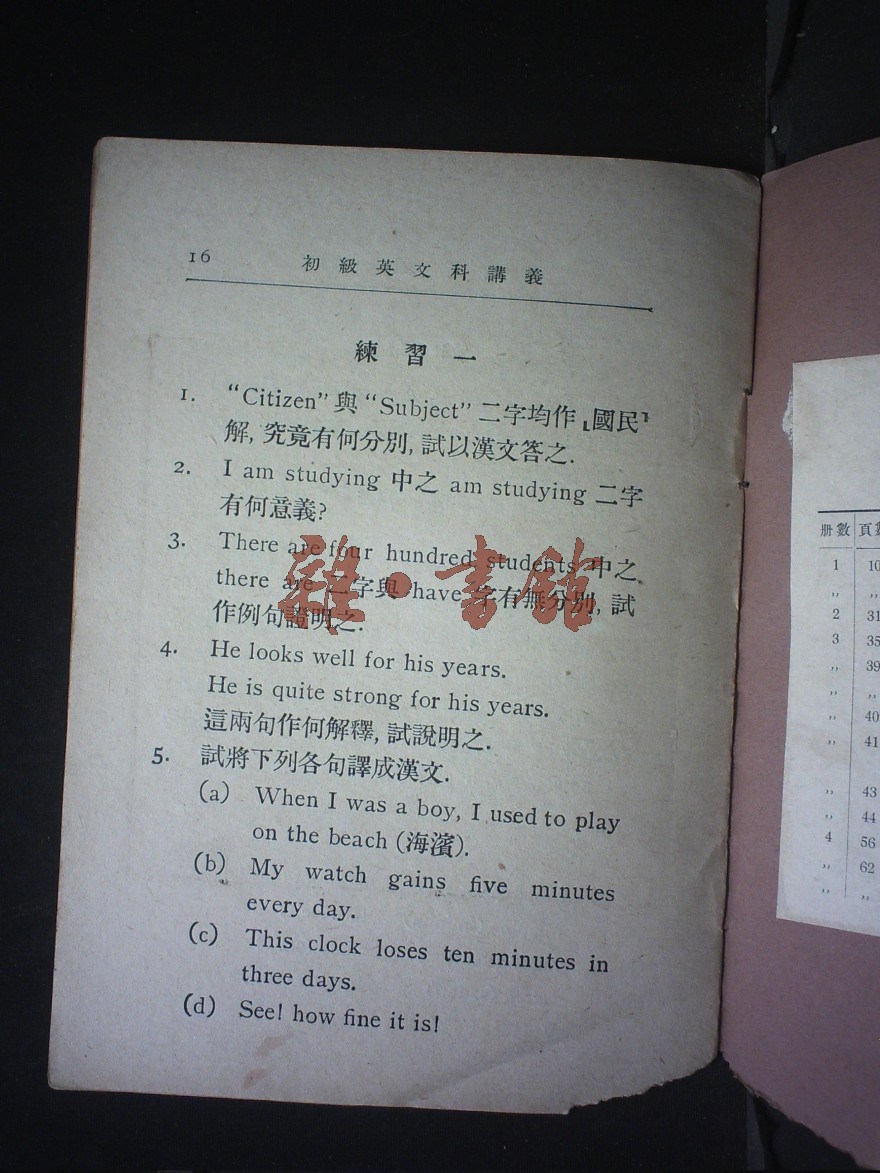 16 初級英文科講義
練習一
1. “Citizen” 與 “Subject” 二字均作「國民」
解, 究竟有何分別, 試以漢文答之.
2. I am studying 中之 am studying 二字
有何意義?
3. There are four hundred students 中之
there are 二字與 have 字有無分別, 試
作例句證明之.
4. He looks well for his years.
He is quite strong for his years.
這兩句作何解釋, 試說明之.
5. 試將下列各句譯成漢文.
(a) When I was a boy, I used to play
on the beach (海濱).
(b) My watch gains five minutes
every day.
(c) This clock loses ten minutes in
three days.
(d) See! how fine it is!
雜·書館
册數 頁
1 10
,, ,,
2 31
3 35
,, 39
,, ,,
,, 40
,, 41
,, 43
,, 44
4 56
,, 62
,, ,,